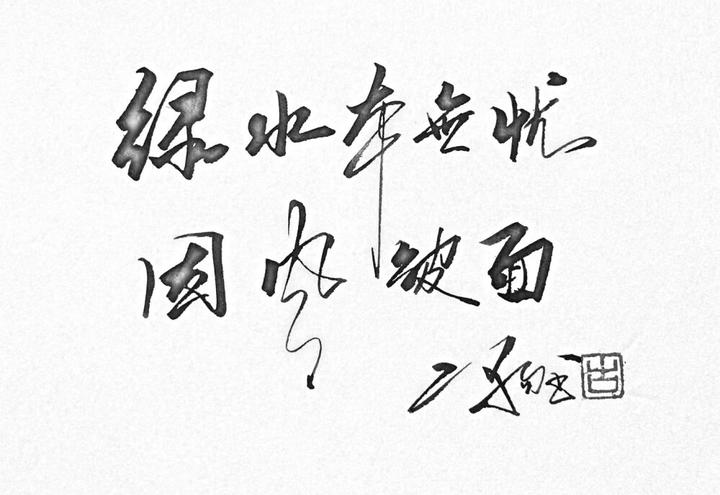 绿水本無忧
因风皱面